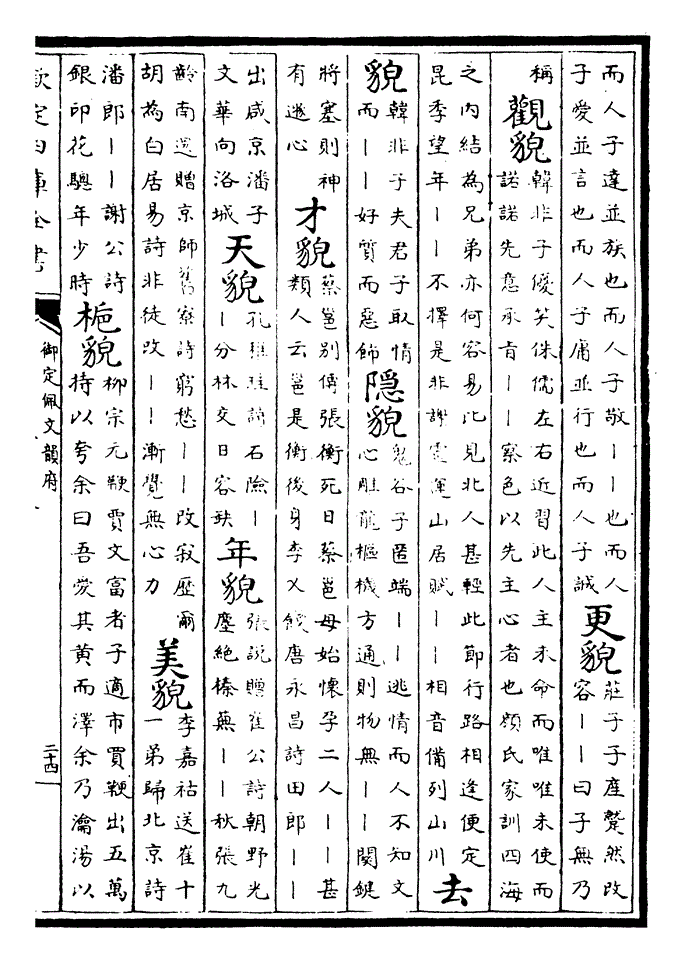 而人子達並族也而人子敬丨丨也而人
子愛並言也而人子庸並行也而人子誠
更貌
莊子子產蹵然改
容丨丨曰子無乃
稱
觀貌
韓非子優笑侏儒左右近習此人主未命而唯唯未使而
諾諾先意承旨丨丨察色以先主心者也顏氏家訓四海
之内結為兄弟亦何容易比見北人甚輕此節行路相逢便定
昆季望年丨丨不擇是非謝靈運山居賦丨丨相音備列山川
去
貌
韓非子夫君子取情
而丨丨好質而惡飾
隱貌
鬼谷子匿端丨丨逃情而人不知文
心雕龍樞機方通則物無丨丨關鍵
將塞則神
有遯心
才貌
蔡邕别傳張衡死日蔡邕母始懷孕二人丨丨甚
類人云邕是衡後身李乂餞唐永昌詩田郎丨丨
出咸京潘子
文華向洛城
天貌
孔稚珪詩石險丨
丨分林交日容缺
年貌
張説贈崔公詩朝野光
塵絶榛蕪丨丨秋張九
齡南還贈京師舊寮詩窮愁丨丨改寂歴爾
胡為白居易詩非徒改丨丨漸覺無心力
美貌
李嘉祐送崔十
一弟歸北京詩
潘郎丨丨謝公詩
銀印花驄年少時
梔貌
柳宗元鞭賈文富者子適市買鞭出五萬
持以夸余曰吾愛其黄而澤余乃瀹湯以
欽定四庫全書
御定佩文韻府
二十四